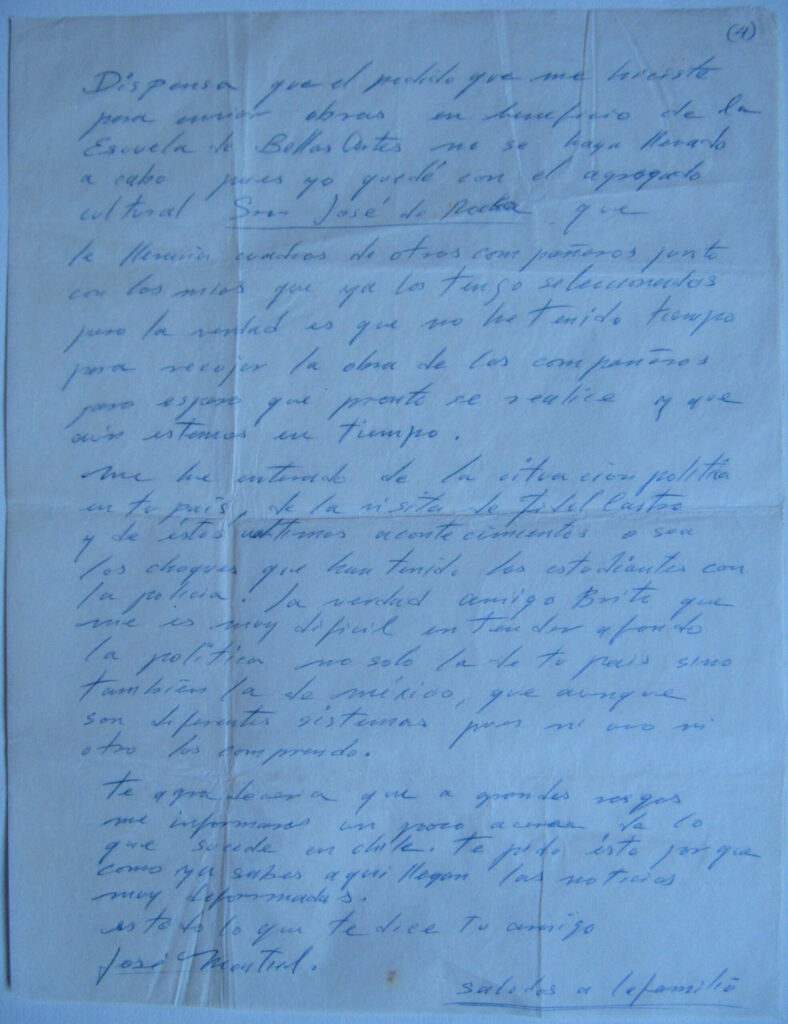 (4)
Dispensa que el pedido que me hiciste
para enviar obras en beneficio de la
Escuela de Bellas Artes no se haya llevado
a cabo pues yo quedé con el agregado
cultural José de que
le llevaría cuadros de otros compañeros junto
con los mios que ya los tengo seleccionados
pero la verdad es que no he tenido tiempo
para recojer la obra de los compañeros
pero espero que pronto se realice y que
aún estemos en tiempo.
me he enterado de la situacion política
en tu país, de la visita de Fidel Castro
y de éstos ultimos acontecimientos o sea
los choques que han tenido los estudiantes con
la policia. la verdad amigo Brito que
me es muy dificil entender a fondo
la política no solo la de tu pais sino
también la de méxico, que aunque
son diferentes sistemas pues ni uno ni
otro los comprendo.
te agradeceria que a grandes rasgos
me informaras un poco acerca de lo
que sucede en chile. te pido ésto porque
como ya sabes aqui llegan las noticias
muy deformadas.
es todo lo que te dice tu amigo
José Montiel.
saludos a la familia